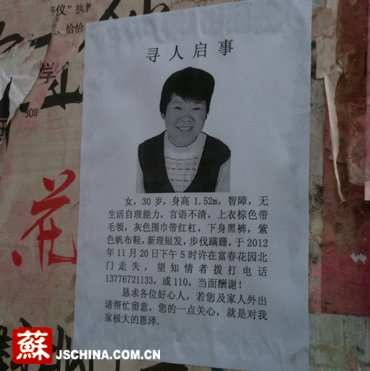 寻人启事
女，30岁，身高1.52m，智障，无
生活自理能力，言语不清，上衣棕色带
毛领，灰色围巾带红杠，下身黑裤，紫
色帆布鞋，新理短发，步伐蹒跚，于2012
年11月20日下午5时许在富春花园北
门走失，望知情者拨打电话
13776721133，或110，当面酬谢！
恳求各位好心人，若您及家人外出
请帮忙留意，您的一点关心，就是对我
家极大的恩泽。
花
蘇 JSCHINA.COM.CN